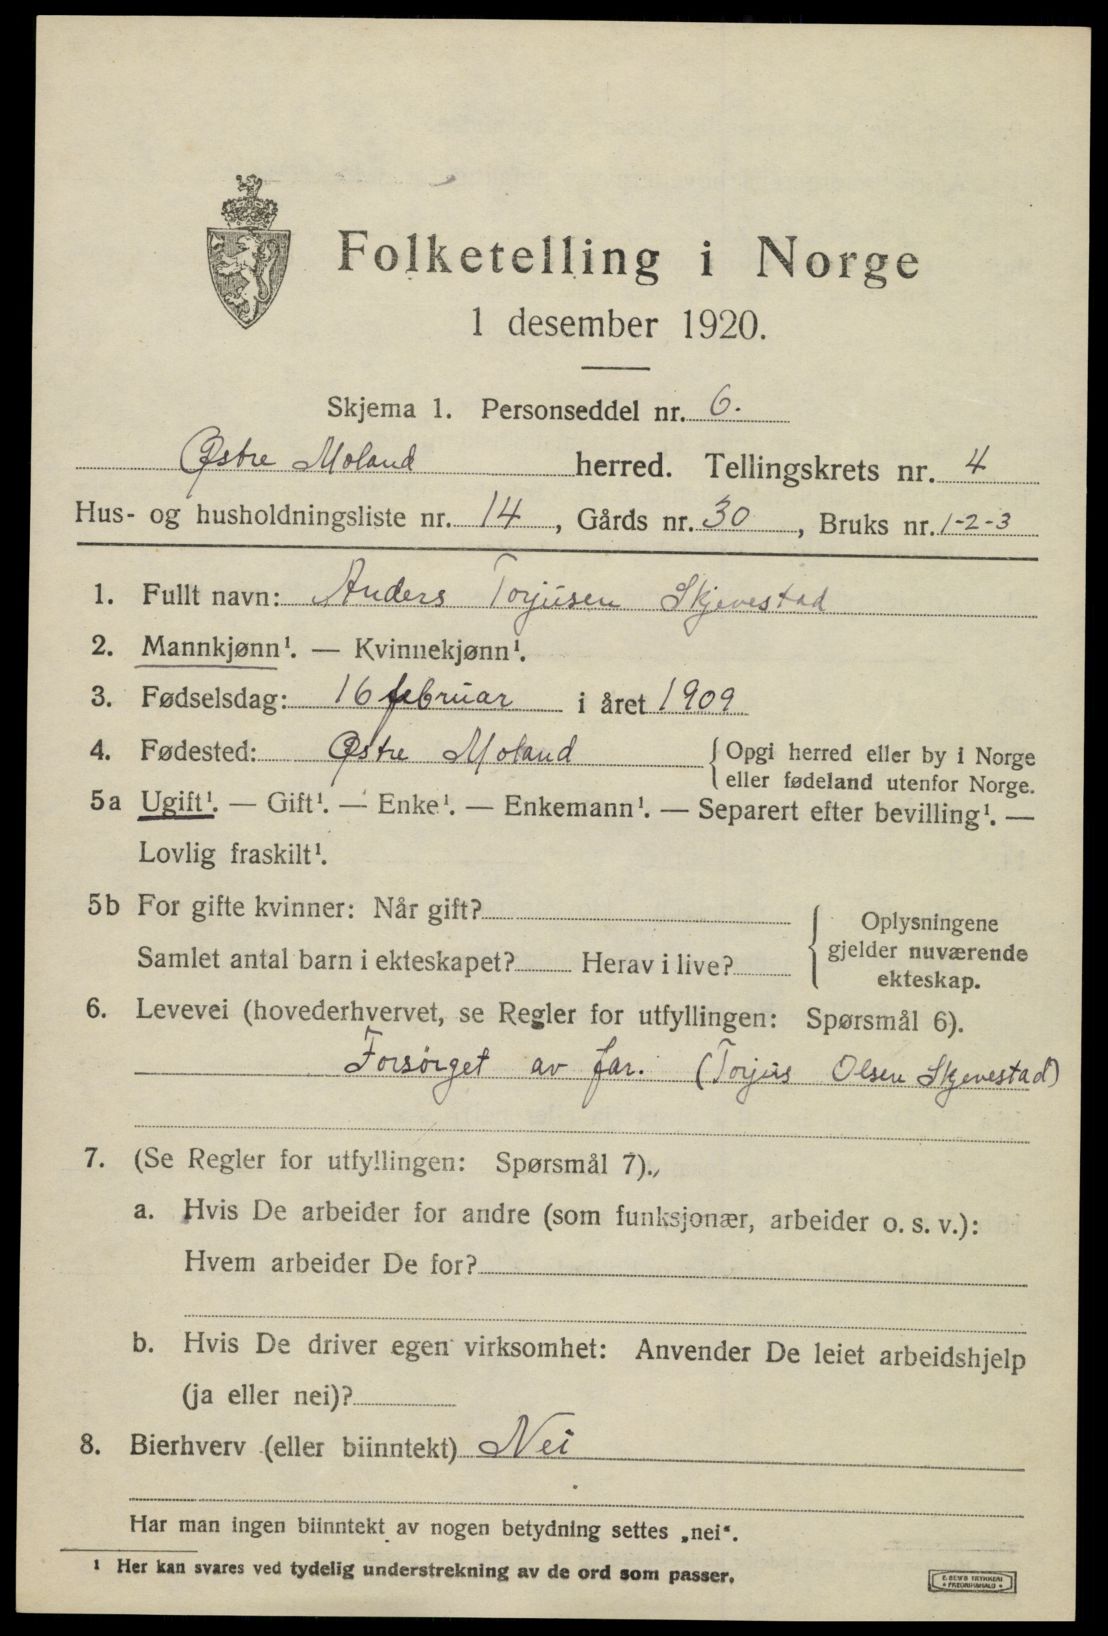 Folketelling i Norge
1 desember 1920.
Skjema 1. Personseddel nr. 6.
Østre Moland herred. Tellingskrets nr. 4
Hus- og husholdningsliste nr. 14, Gårds nr. 30, Bruks nr. 1-2-3
1. Fullt navn: Anders Torjusen Skjevestad
2. Mannkjønn¹. — Kvinnekjønn¹.
3. Fødselsdag: 16 februar i året 1909
4. Fødested: Østre Moland { Opgi herred eller by i Norge
eller fødeland utenfor Norge.
5a Ugift¹. — Gift¹. — Enke¹. — Enkemann¹. — Separert efter bevilling¹. —
Lovlig fraskilt¹.
5b For gifte kvinner: Når gift?
Samlet antal barn i ekteskapet? Herav i live?
{ Oplysningene
gjelder nuværende
ekteskap.
6. Levevei (hovederhvervet, se Regler for utfyllingen: Spørsmål 6).
Forsørget av far. (Torjus Olsen Skjevestad)
7. (Se Regler for utfyllingen: Spørsmål 7).
a. Hvis De arbeider for andre (som funksjonær, arbeider o. s. v.):
Hvem arbeider De for?
b. Hvis De driver egen virksomhet: Anvender De leiet arbeidshjelp
(ja eller nei)?
8. Bierhverv (eller biinntekt) Nei
Har man ingen biinntekt av nogen betydning settes „nei“.
¹ Her kan svares ved tydelig understrekning av de ord som passer.
E. SEMS TRYKKERI
• FREDRIKSHALD •